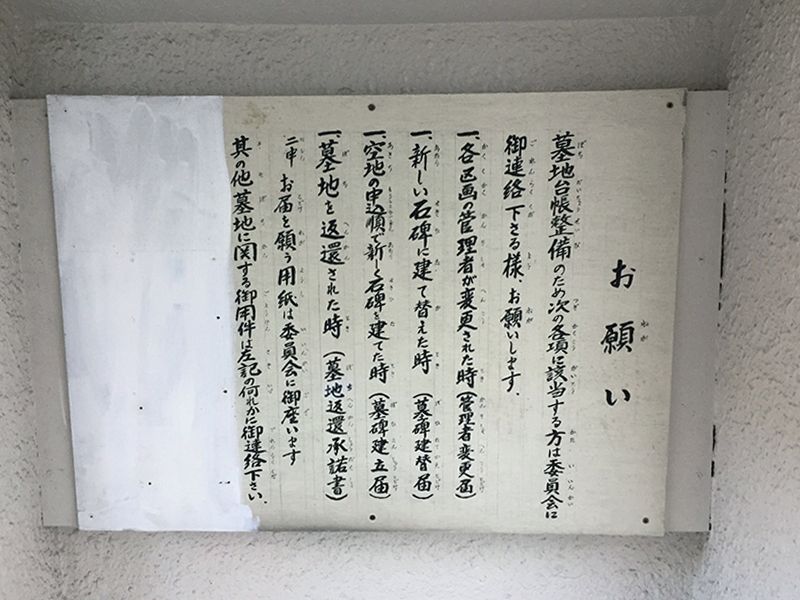 お願い
墓地台帳整備のため次の各項に該当する方は委員会に
御連絡下さる様、お願いします、
一、各区画の管理者が変更された時(管理者変更届)
一、新しい石碑に建て替えた時(墓碑建替届)
一、空地の申込順で新しく石碑を建てた時(墓碑建立届)
一、墓地を返還された時(墓地返還承諾書)
お届を願う用紙は委員会に御座います
其の他墓地に関する御用件は左記の何れかに御連絡下さい、